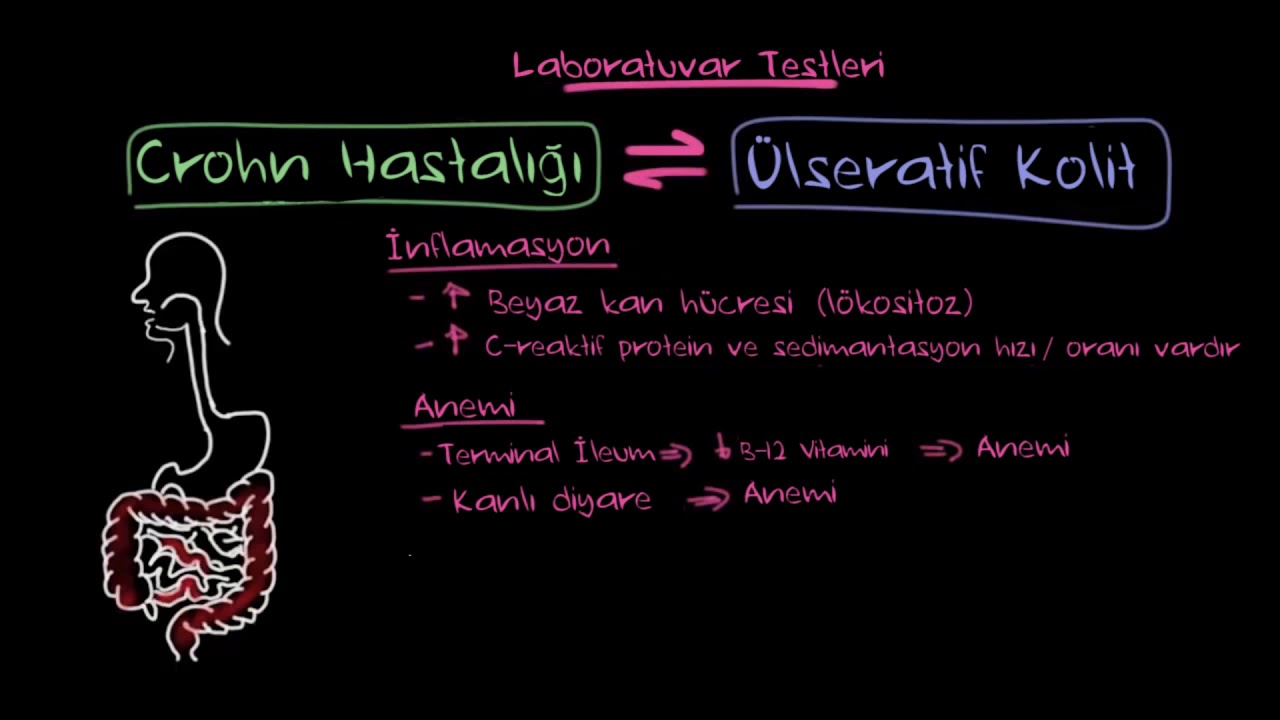 Laboratuvar Testleri
Crohn Hastalığı ⇌ Ülseratif Kolit
İnflamasyon
- ↑ Beyaz kan hücresi (lökositoz)
- ↑ C-reaktif protein ve sedimantasyon hızı / oranı vardır
Anemi
- Terminal İleum ⇒ ↓ B-12 Vitamini ⇒ Anemi
- Kanlı diyare ⇒ Anemi